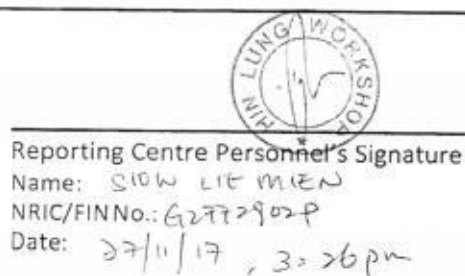 HIN LUNG WORKSHOP
Reporting Centre Personnel's Signature
Name: SIOW LIE MIEN
NRIC/FINNo.: G2772902P
Date: 27/11/17, 3:26pm